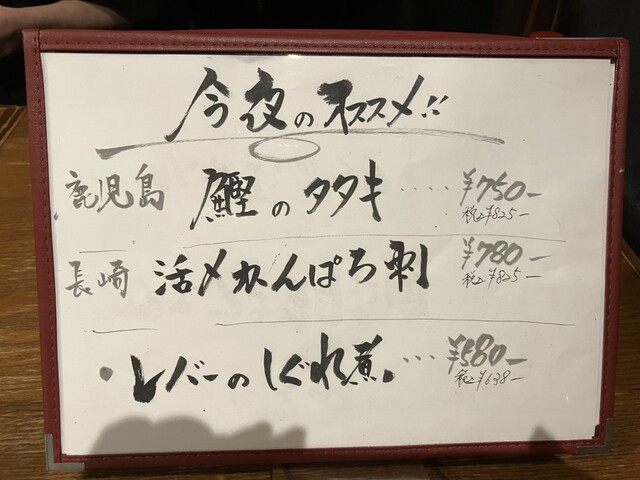 今夜のオススメ!!
鹿児島 鰹のタタキ ‥‥ ¥750-
税込¥825-
長崎 活〆かんぱち刺 ¥780-
税込¥825-
・レバーのしぐれ煮。‥‥ ¥580-
税込¥638-